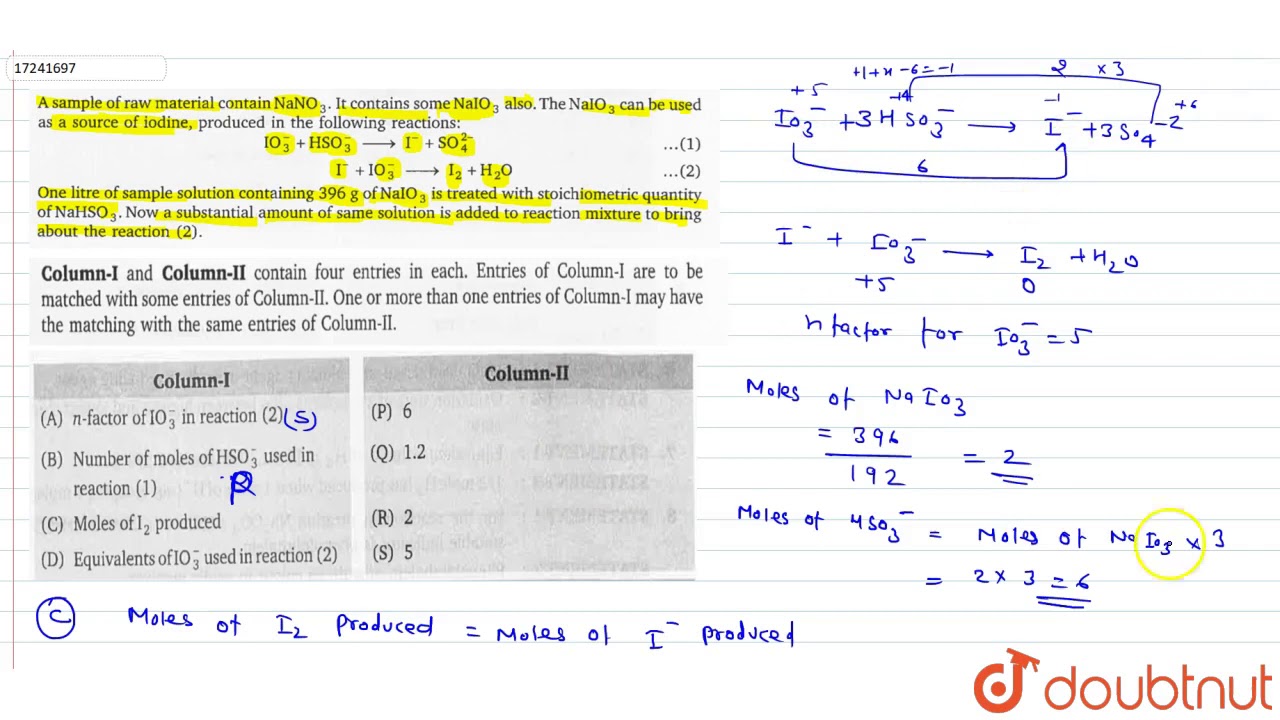 17241697
A sample of raw material contain NaNO₃. It contains some NaIO₃ also. The NaIO₃ can be used
as a source of iodine, produced in the following reactions:
IO₃⁻ + HSO₃⁻ ⟶ I⁻ + SO₄²⁻ ...(1)
I⁻ + IO₃⁻ ⟶ I₂ + H₂O ...(2)
One litre of sample solution containing 396 g of NaIO₃ is treated with stoichiometric quantity
of NaHSO₃. Now a substantial amount of same solution is added to reaction mixture to bring
about the reaction (2).
Column-I and Column-II contain four entries in each. Entries of Column-I are to be
matched with some entries of Column-II. One or more than one entries of Column-I may have
the matching with the same entries of Column-II.
Column-I Column-II
(A) n-factor of IO₃⁻ in reaction (2) (S) (P) 6
(B) Number of moles of HSO₃⁻ used in (Q) 1.2
reaction (1) P
(C) Moles of I₂ produced (R) 2
(D) Equivalents of IO₃⁻ used in reaction (2) (S) 5
+1+x-6=-1 2 ×3
+5 +4 -1 +6
IO₃⁻ + 3HSO₃⁻ ⟶ I⁻ + 3SO₄⁻²
6
I⁻ + IO₃⁻ ⟶ I₂ + H₂O
+5 0
n factor for IO₃⁻ = 5
Moles of NaIO₃
= 396
192 = 2
Moles of HSO₃⁻ = Moles of NaIO₃ × 3
= 2 × 3 = 6
(C) Moles of I₂ produced = Moles of I⁻ produced
doubtnut